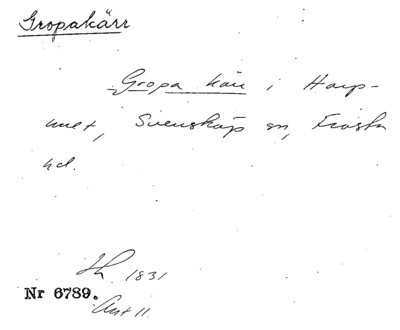 Gropakärr
Gropa kärr i Harp-
unet, Svensköp sn, Frosta
hd.
1831
Nr 6789.
Akt 11.